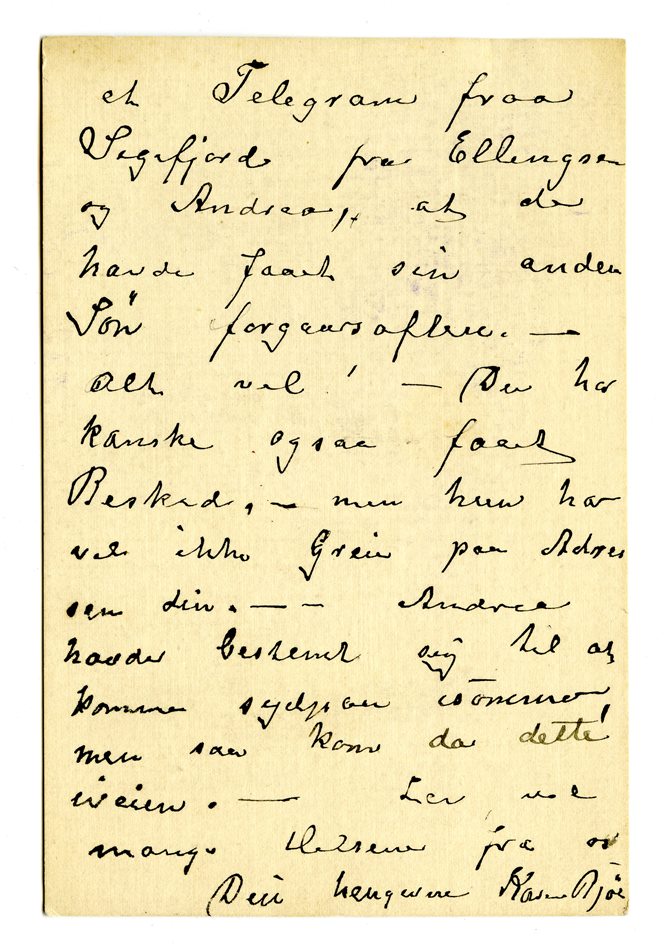 et Telegram fraa
Segefjord fra Ellengsen
og Andrea, at de
havde faaet sin anden
Sön forgaarsaften. —
Alt vel! — Du har
kanske ogsaa faaet
Besked, — men hun har
vel ikke Grein paa Adres
sen din. — – Andrea
havde bestemt sig til at
komme sydpaa isommer,
men saa kom da dette
iveien. — Lev vel
mange Hilsener fra os
Din hengivne Karen